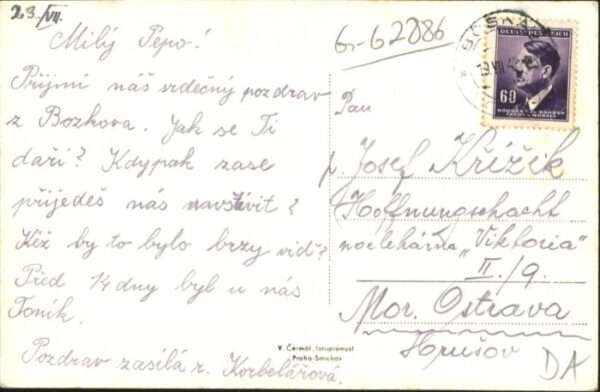 23./VII.
Milý Pepo!
Přijmi náš srdečný pozdrav
z Bozkova. Jak se Ti
daří? Kdypak zase
přijedeš nás navštívit?
Kéž by to bylo brzy viď?
Před 14 dny byl u nás
Toník.
Pozdrav zasílá r. Korbelářová.
V. Čermák, fotoprůmysl
Praha-Smíchov
6-62886
60
Pan
p. Josef Křížik
Hoffnungschacht
noclehárna „Viktoria"
II./9.
Mor. Ostrava
Hrušov
DA